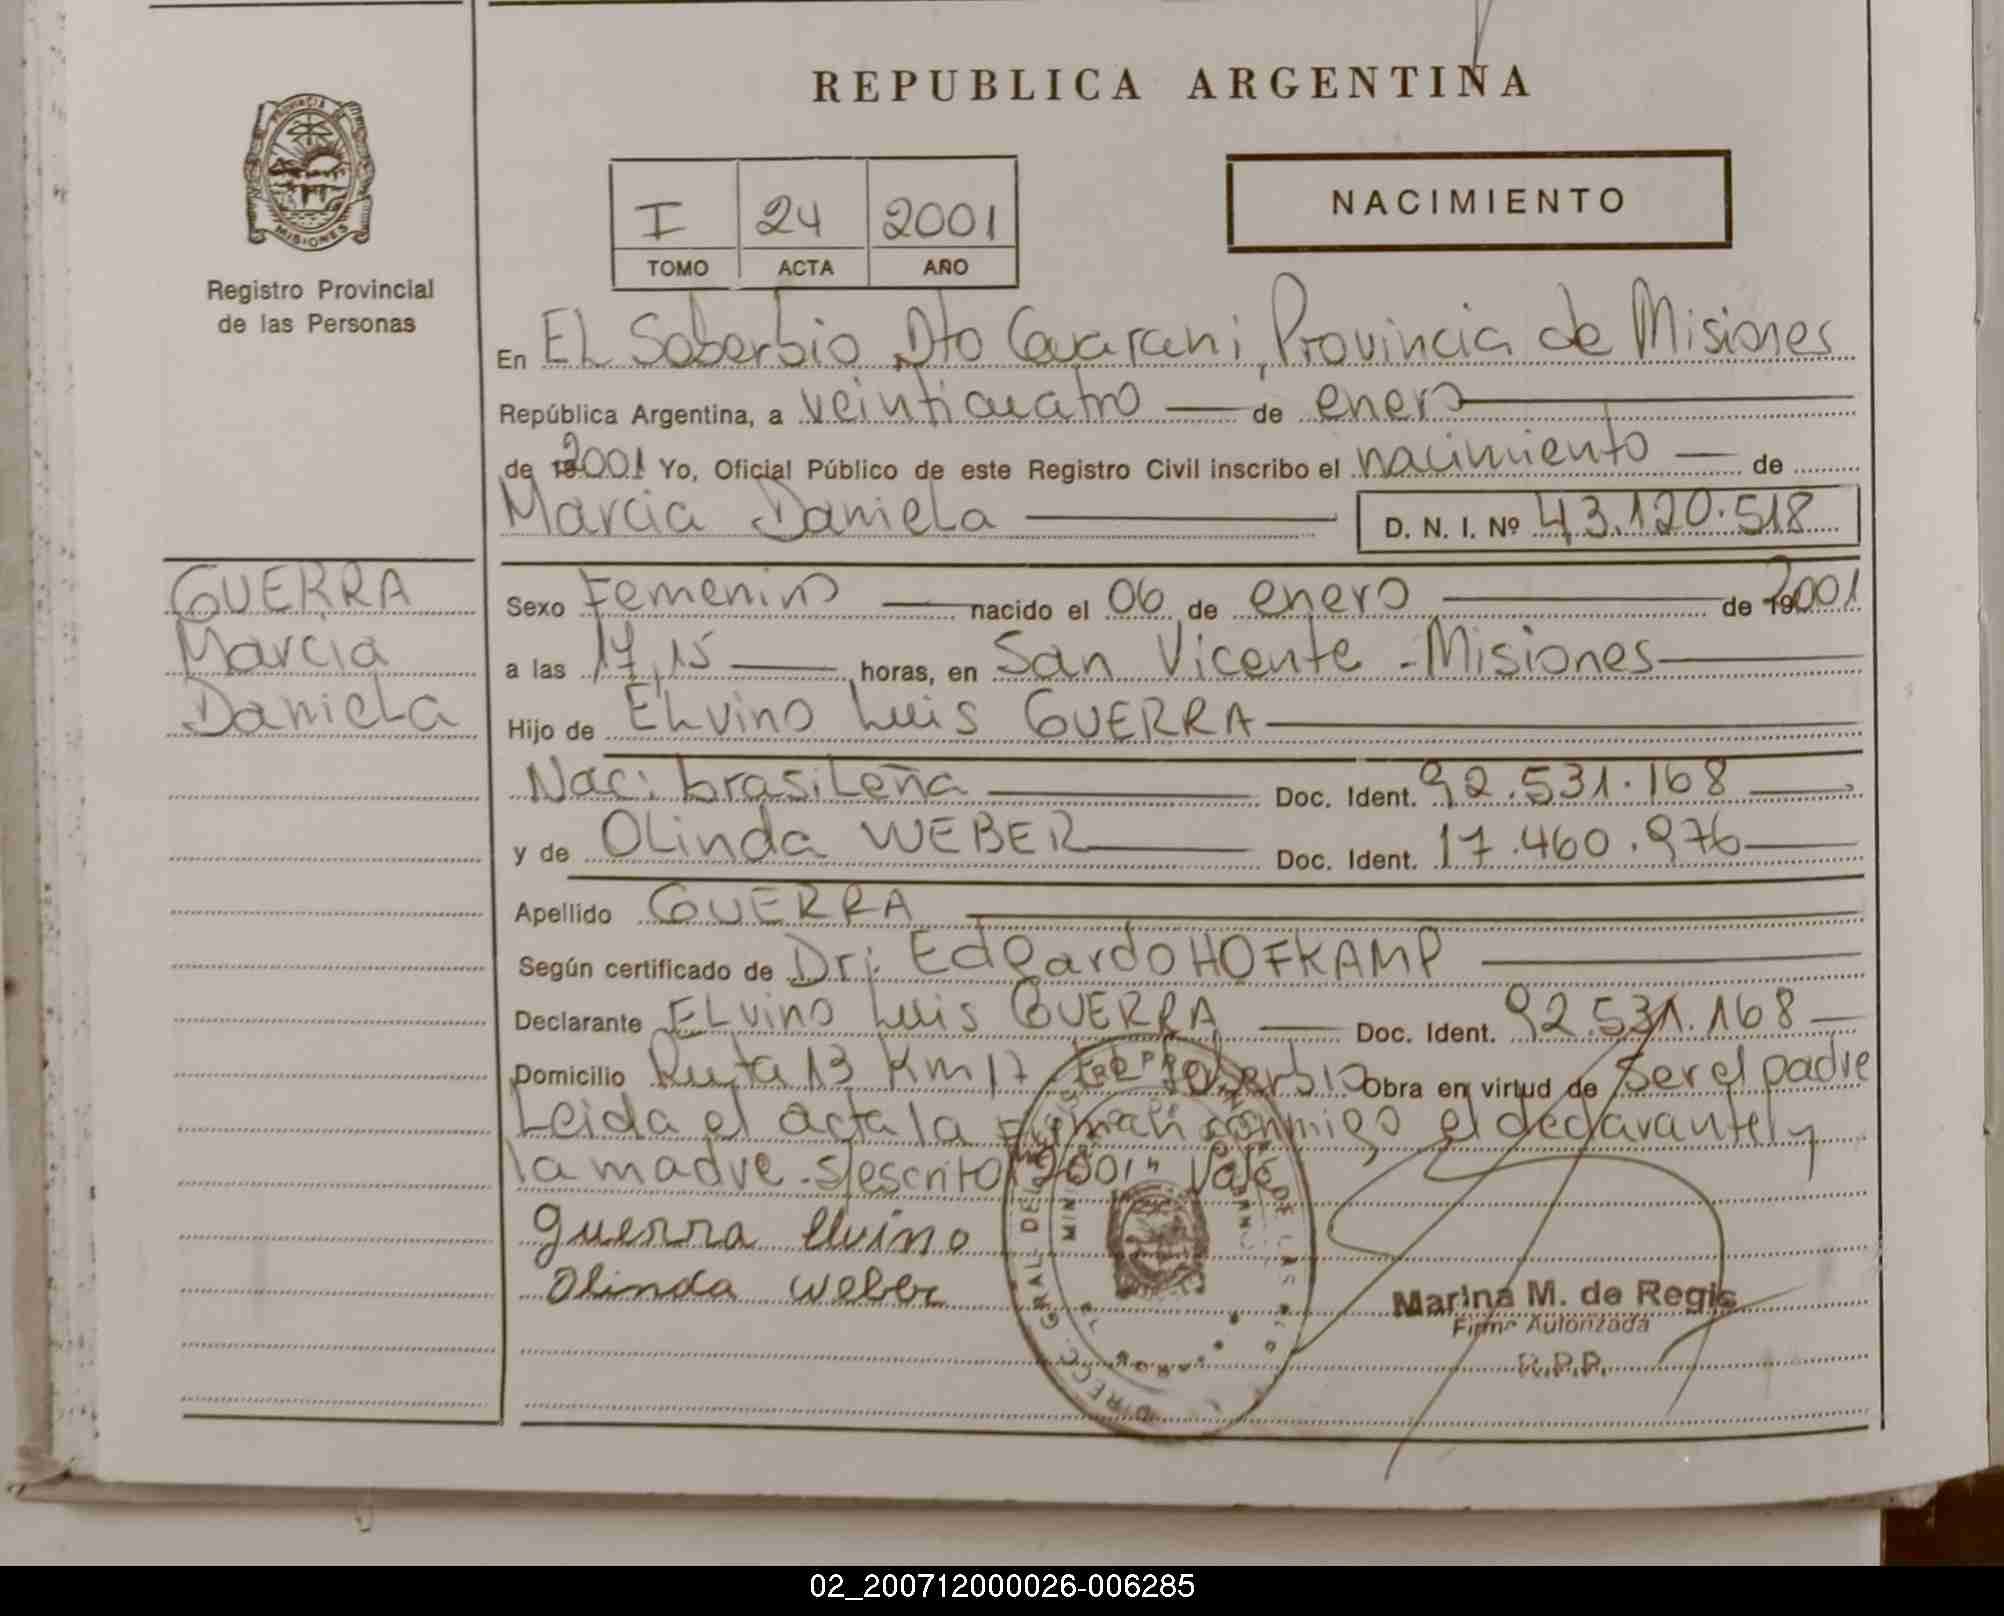 REPUBLICA ARGENTINA
PROVINCIA DE
MISIONES
Registro Provincial
de las Personas
I 24 2001
TOMO ACTA AÑO
NACIMIENTO
En EL Soberbio, Dto Guarani, Provincia de Misiones
República Argentina, a veinticuatro de enero
de 2001 Yo, Oficial Público de este Registro Civil inscribo el nacimiento de
Marcia Daniela D. N. I. Nº 43.120.518
GUERRA
Marcia
Daniela
Sexo Femenino nacido el 06 de enero de 2001
a las 17,15 horas, en San Vicente - Misiones
Hijo de ELvino Luis GUERRA
Nac: brasiLeña Doc. Ident. 92.531.168
y de OLinda WEBER Doc. Ident. 17.460.976
Apellido GUERRA
Según certificado de Dr: Edgardo HOFKAMP
Declarante ELvino Luis GUERRA Doc. Ident. 92.531.168
Domicilio Ruta 13 Km 17 Soberbio Obra en virtud de Ser el padre
Leida el acta la firman conmigo el declarante y
la madre. s/escrito "2001" Vale
guerra elvino
Olinda weber
DIREC. GRAL. DEL
Marina M. de Regis
Firma Autorizada
R.P.P.
02_200712000026-006285